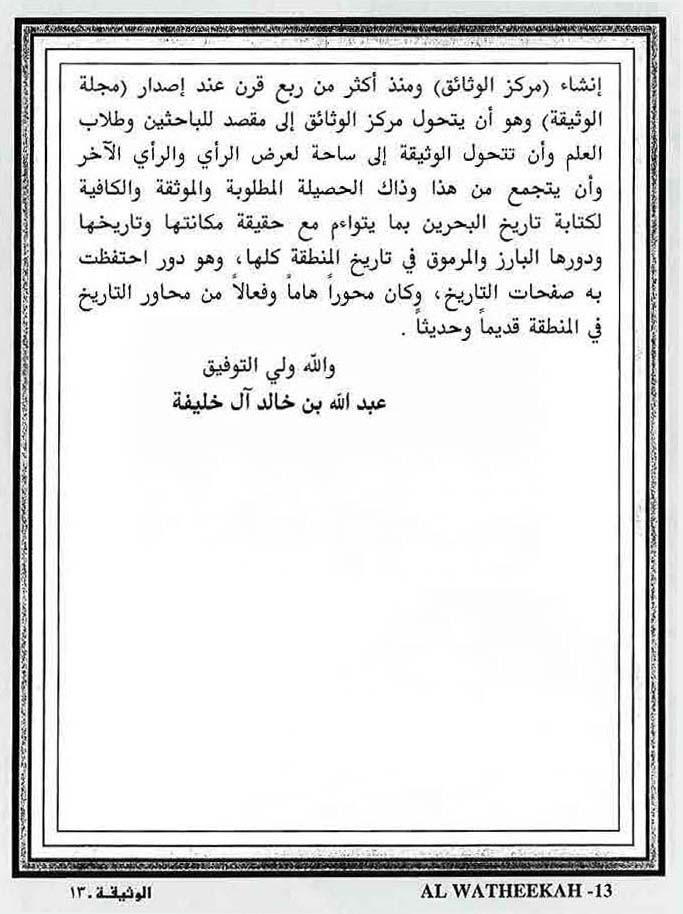 إنشاء (مركز الوثائق) ومنذ أكثر من ربع قرن عند إصدار (مجلة
الوثيقة) وهو أن يتحول مركز الوثائق إلى مقصد للباحثين وطلاب
العلم وأن تتحول الوثيقة إلى ساحة لعرض الرأي والرأي الآخر
وأن يتجمع من هذا وذاك الحصيلة المطلوبة والموثقة والكافية
لكتابة تاريخ البحرين بما يتواءم مع حقيقة مكانتها وتاريخها
ودورها البارز والمرموق في تاريخ المنطقة كلها، وهو دور احتفظت
به صفحات التاريخ، وكان محوراً هاماً وفعالاً من محاور التاريخ
في المنطقة قديماً وحديثاً .
والله ولي التوفيق
عبد الله بن خالد آل خليفة
الوثيقة ـ ١٣
AL WATHEEKAH -13